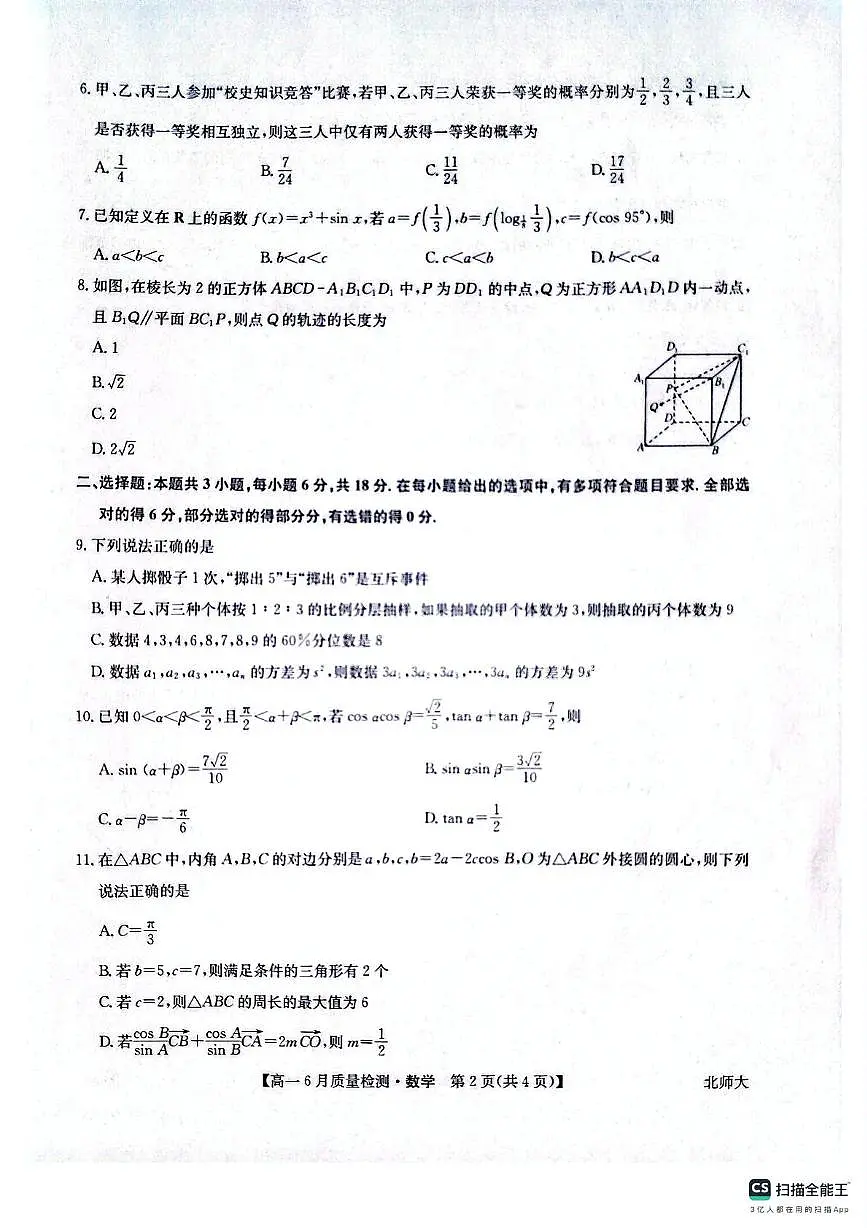 6. 甲、乙、丙三人参加“校史知识竞答”比赛,若甲、乙、丙三人荣获一等奖的概率分别为1/2,2/3,3/4,且三人
是否获得一等奖相互独立,则这三人中仅有两人获得一等奖的概率为
A. 1/4 B. 7/24 C. 11/24 D. 17/24
7. 已知定义在 R 上的函数 f(x)=x³+sin x,若 a=f(1/3),b=f(log 1/3),c=f(cos 95°),则
A. a<b<c B. b<a<c C. c<a<b D. b<c<a
8. 如图,在棱长为 2 的正方体 ABCD-A₁B₁C₁D₁ 中,P 为 DD₁ 的中点,Q 为正方形 AA₁D₁D 内一动点,
且 B₁Q∥平面 BC₁P,则点 Q 的轨迹的长度为
A. 1
B. √2
C. 2
D. 2√2
D₁ C₁
A₁ P B₁
Q
D C
A B
二、选择题:本题共 3 小题,每小题 6 分,共 18 分. 在每小题给出的选项中,有多项符合题目要求. 全部选
对的得 6 分,部分选对的得部分分,有选错的得 0 分.
9. 下列说法正确的是
A. 某人掷骰子 1 次,“掷出 5”与“掷出 6”是互斥事件
B. 甲、乙、丙三种个体按 1∶2∶3 的比例分层抽样,如果抽取的甲个体数为 3,则抽取的丙个体数为 9
C. 数据 4,3,4,6,8,7,8,9 的 60%分位数是 8
D. 数据 a₁,a₂,a₃,…,aₙ 的方差为 s²,则数据 3a₁,3a₂,3a₃,…,3aₙ 的方差为 9s²
10. 已知 0<α<β<π/2,且π/2<α+β<π,若 cos αcos β=√2/5,tan α+tan β=7/2,则
A. sin (α+β)=7√2/10 B. sin αsin β=3√2/10
C. α-β=-π/6 D. tan α=1/2
11. 在△ABC 中,内角 A,B,C 的对边分别是 a,b,c,b=2a-2ccos B,O 为△ABC 外接圆的圆心,则下列
说法正确的是
A. C=π/3
B. 若 b=5,c=7,则满足条件的三角形有 2 个
C. 若 c=2,则△ABC 的周长的最大值为 6
D. 若cos B/sin A CB→+cos A/sin B CA→=2m CO→,则 m=1/2
【高一 6 月质量检测·数学 第 2 页(共 4 页)】 北师大
CS 扫描全能王
3亿人都在用的扫描App